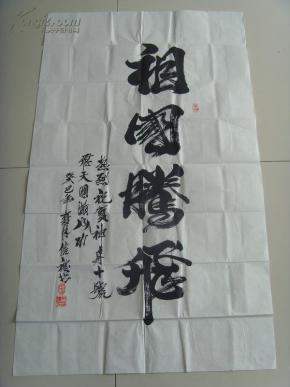 祖國騰飛
熱烈祝賀神舟十號
飛天圓滿成功
癸巳年